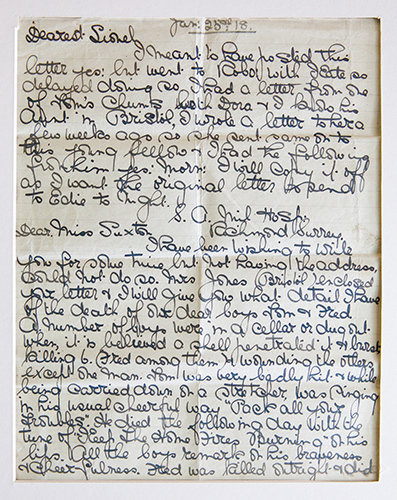 Jan: 23rd. 18.
Dearest Lionel
I meant to have posted this
letter yes: but went to
with so
delayed doing so. I had a letter from one
of Tom's Chums with Dora & I know his
Aunt in Bristol, I wrote a letter to her a
few weeks ago so she sent same on to
this young fellow & I had the following
from him yes: Morn: I will copy it off
as I want the original letter to send
to Edie to night.
S. A. Mil Hosp:
Richmond Surrey.
Dear Miss
I have been wishing to write
you for some time but not having the address,
could not do so. Mrs Jones (Bristol) enclosed
your letter & I will give you what detail I have
of the death of our dear boys Tom & Fred
A number of boys were in a cellar or dug out
when it is believed a shell penetrated it & burst
killing 6. Fred among them & wounding the others
except one man. Tom was very badly hit & while
being carried down on a stretcher, was singing
in his usual cheerful way "Pack all your
troubles". He died the following day with the
tune of "Keep the Home Fires Burning" on his
lips. All the boys remark on his braveness
& cheerfulness. Fred was killed outright & did